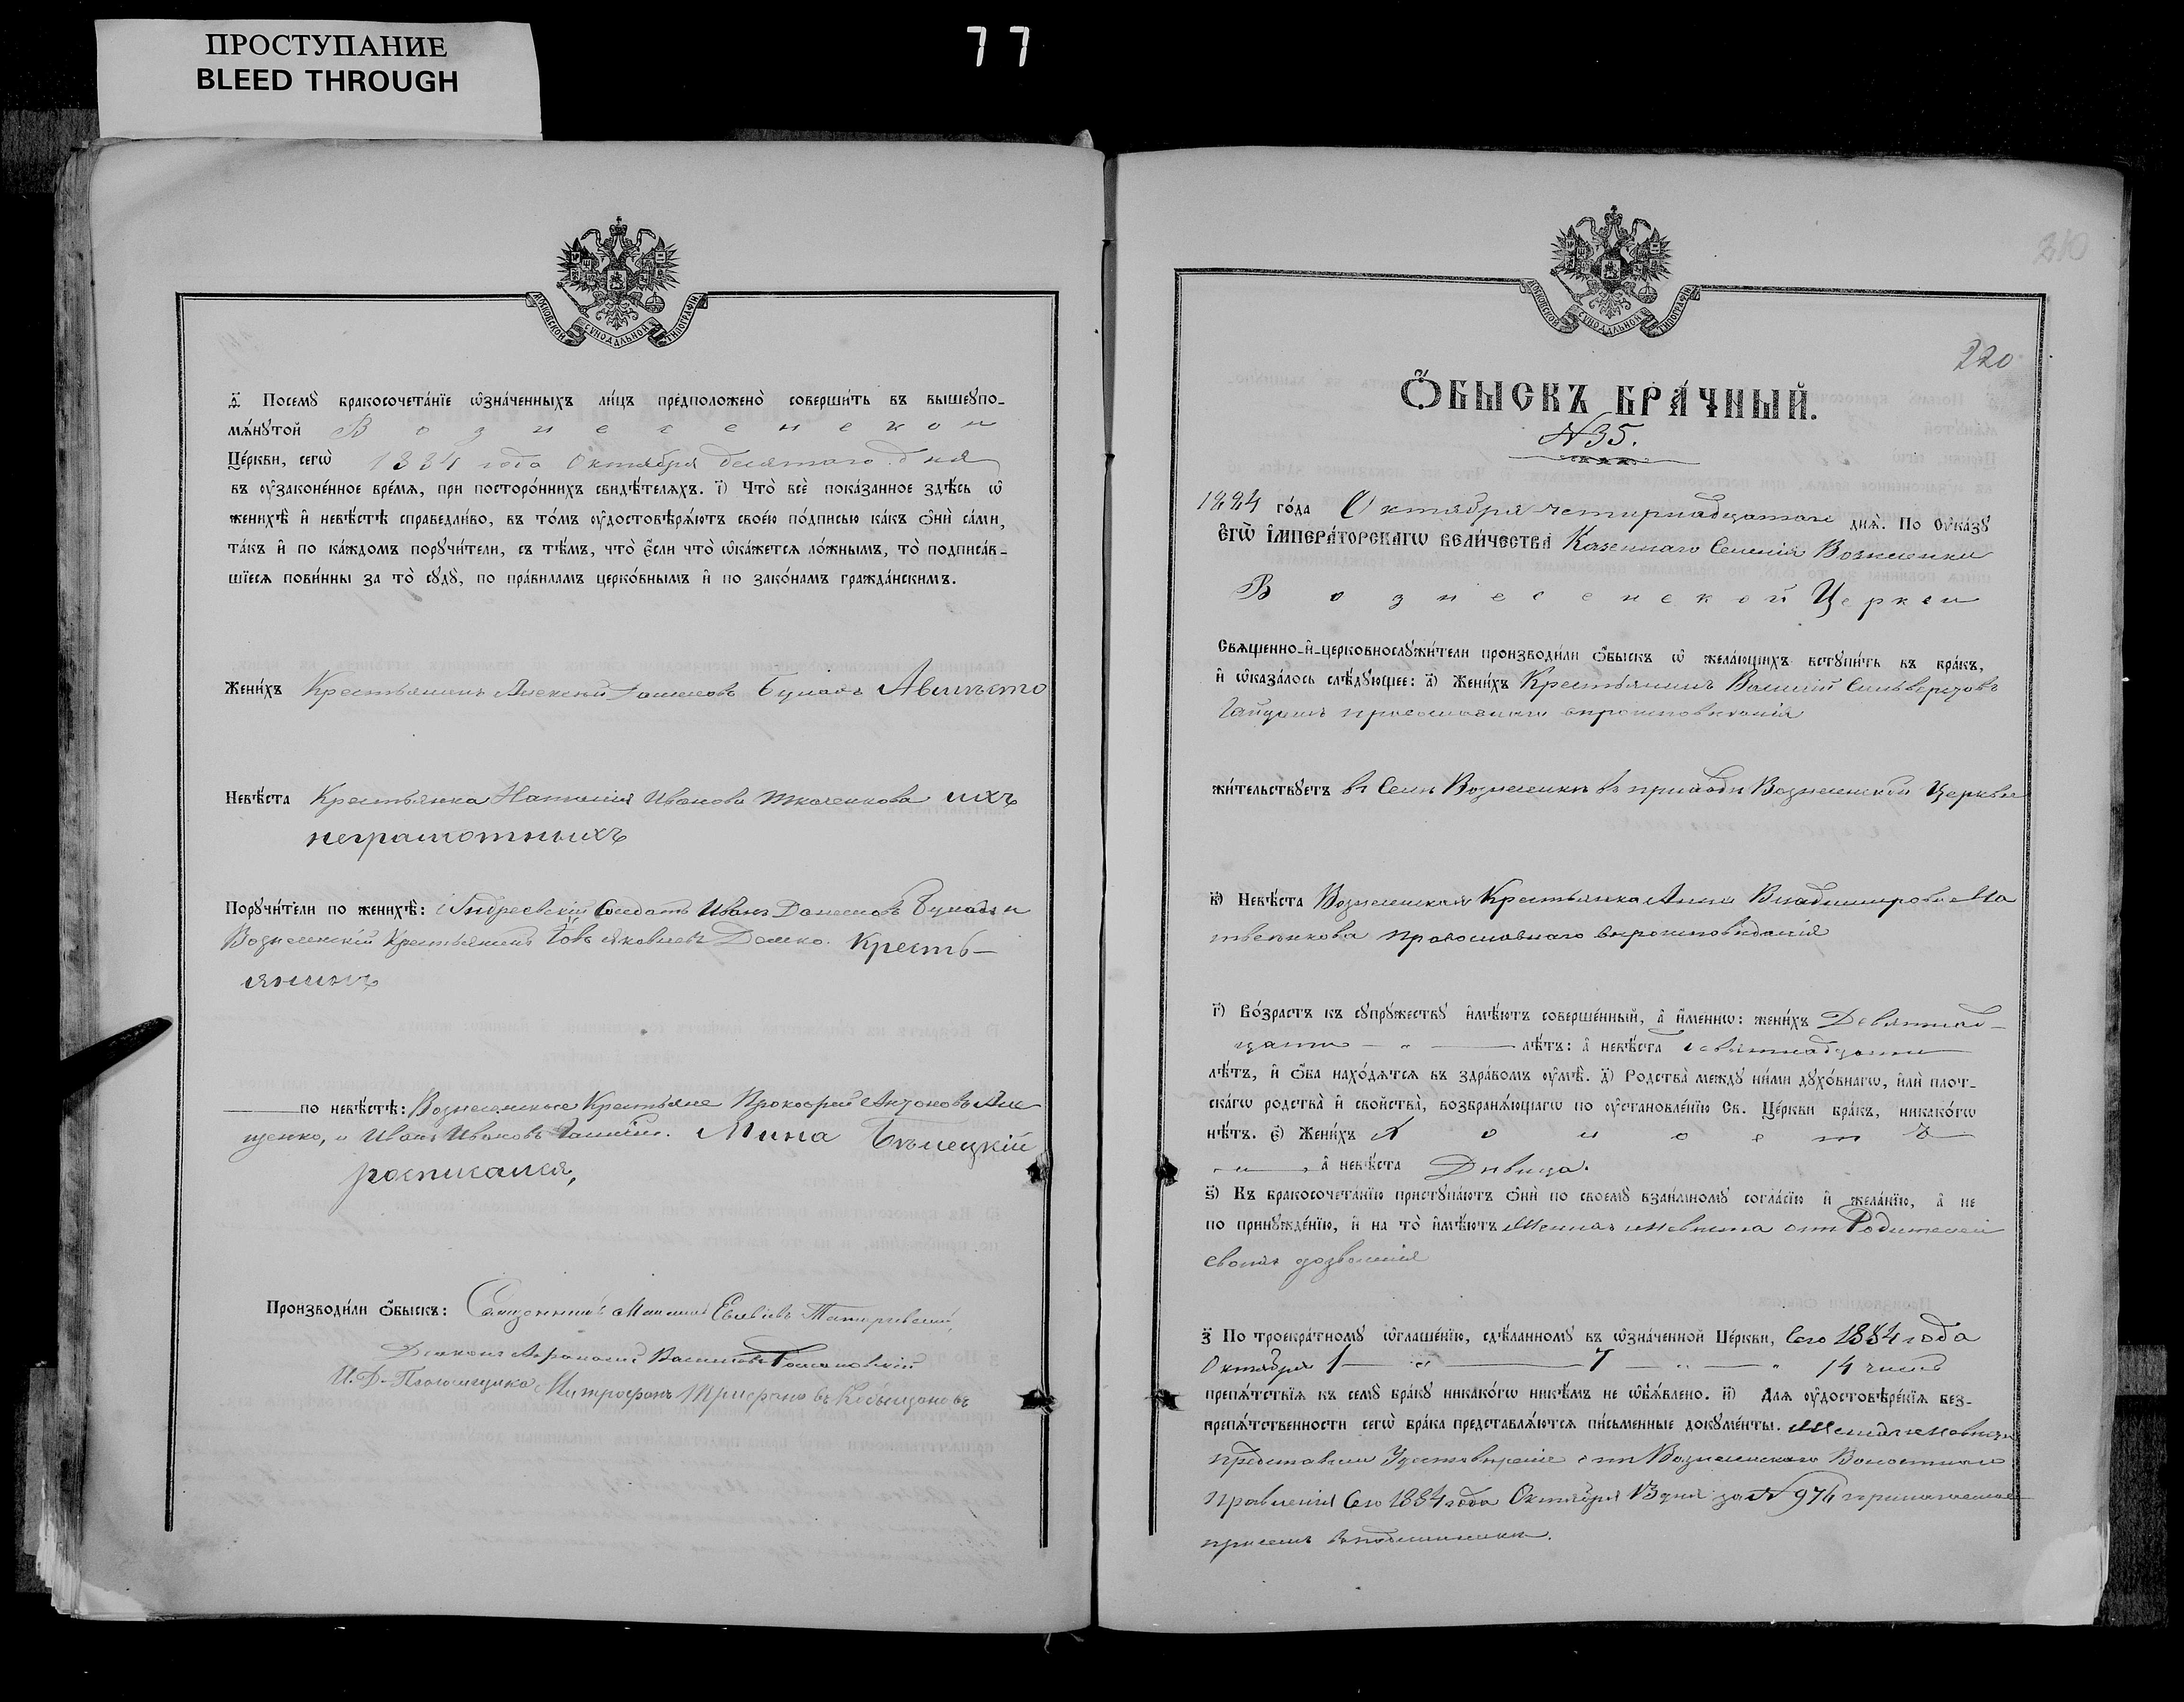 ПРОСТУПАНИЕ
BLEED THROUGH
77
МОСКОВСКОЙ СѴНОДАЛЬНОЙ ТИПОГРАФІИ
Посемꙋ бракосочета́нїе ѡ҆зна́ченныхъ ли́цъ предположено̀ соверши́ть въ вышеꙋпо-
мѧ́нꙋтой Вознесенской
Це́ркви, сегѡ̀ 1884 года Октября десятаго дня
въ ᲂу҆законе́нное вре́мѧ, при посторо́ннихъ свидѣ́телѧхъ. і҃) Что̀ всѐ пока́занное здѣ́сь ѡ҆
женихѣ̀ и҆ невѣ́стѣ справедли́во, въ то́мъ ᲂу҆достовѣрѧ́ютъ свое́ю по́дписью ка́къ ѻ҆нѝ са́ми,
та́къ и҆ по ка́ждомъ порꙋчи́тели, съ тѣ́мъ, что̀ є҆́сли что̀ ѡ҆ка́жетсѧ ло́жнымъ, то̀ подписа́в-
шїесѧ пови́нны за то̀ сꙋдꙋ̀, по пра́виламъ церко́внымъ и҆ по зако́намъ гражда́нскимъ.
Жени́хъ Крестьянинъ Алексѣй Бунадъ
Невѣ́ста Крестьянка Наталия Иванова Ткаченкова ихъ
неграмотныхъ
Порꙋчи́тели по женихѣ̀: Андреевскій Солдатъ Иванъ Бунадъ и
Вознесенскій Крестьянинъ Іовъ Яковлевъ Демко. Кресть-
янинъ
по невѣ́стѣ: Вознесенскіе Крестьяне Прокофій Антоновъ
щенко, и Иванъ Ивановъ Мина Бѣлецкій
росписался,
Производи́ли ѻ҆́быскъ: Священникъ
Діаконъ Афанасій Васильевъ
И. Д. Псаломщика Митрофанъ Трифоновъ
210
220
МОСКОВСКОЙ СѴНОДАЛЬНОЙ ТИПОГРАФІИ
Ѻ҆́БЫСКЪ БРА́ЧНЫЙ.
N 35.
1884 го́да Октября четырнадцатаго днѧ̀. По ᲂу҆ка́зꙋ
є҆гѡ̀ і҆мпера́торскагѡ вели́чества Казеннаго Селенія Вознесенки
Вознесенской Церкви
Свѧщенно-и҆-церковнослꙋжи́тели производи́ли ѻ҆́быскъ ѡ҆ жела́ющихъ встꙋпи́ть въ бра́къ,
и҆ ѡ҆каза́лось слѣ́дꙋющее: а҃) Жени́хъ Крестьянинъ Василій Сильверстовъ
православнаго вѣроисповѣданія
жи́тельствꙋетъ въ Селѣ Вознесенкѣ въ приходѣ Вознесенской Церкви
в҃) Невѣ́ста Вознесенская Крестьянка Анна Владимирова Ма
твѣенкова православнаго вѣроисповѣданія
г҃) Во́зрастъ къ сꙋпрꙋ́жествꙋ и҆мѣ́ютъ соверше́нный, а҆ и҆́меннѡ: жени́хъ Девятнад-
цати лѣ́тъ: а҆ невѣ́ста девятнадцати
лѣ́тъ, и҆ ѻ҆́ба нахо́дѧтсѧ въ здра́вомъ ᲂу҆мѣ̀. д҃) Родства̀ междꙋ ни́ми дꙋхо́внагѡ, и҆лѝ плот-
ска́гѡ родства̀ и҆ свойства̀, возбранѧ́ющагѡ по ᲂу҆становле́нїю Св. Це́ркви бра́къ, никако́гѡ
нѣ́тъ. є҃) Жени́хъ Холостъ
, а҆ невѣ́ста Дѣвица.
ѕ҃) Къ бракосочета́нїю пристꙋпа́ютъ ѻ҆нѝ по своемꙋ̀ взаи́мномꙋ согла́сїю и҆ жела́нїю, а҆ не
по принꙋжде́нїю, и҆ на то̀ и҆мѣ́ютъ Женихъ и невѣста отъ Родителей
своихъ дозволенія
з҃ По троекра́тномꙋ ѡ҆глаше́нїю, сдѣ́ланномꙋ въ ѡ҆зна́ченной Це́ркви, Сего 1884 года
Октября 1 — " — 7 — " — 14 чиселъ
препѧ́тствїѧ къ семꙋ̀ бра́кꙋ никако́гѡ никѣ́мъ не ѡ҆б̾ѧ́влено. и҃) Длѧ ᲂу҆достовѣре́нїѧ без-
препѧ́тственности сегѡ̀ бра́ка представлѧ́ютсѧ пи́сьменные докꙋме́нты. Женихъ и Невѣста
представили Удостовѣреніе отъ Вознесенскаго Волостнаго
правленія Сего 1884 года Октября 13 дня за N 976 прилагаемое
при семъ въ подлинникѣ.